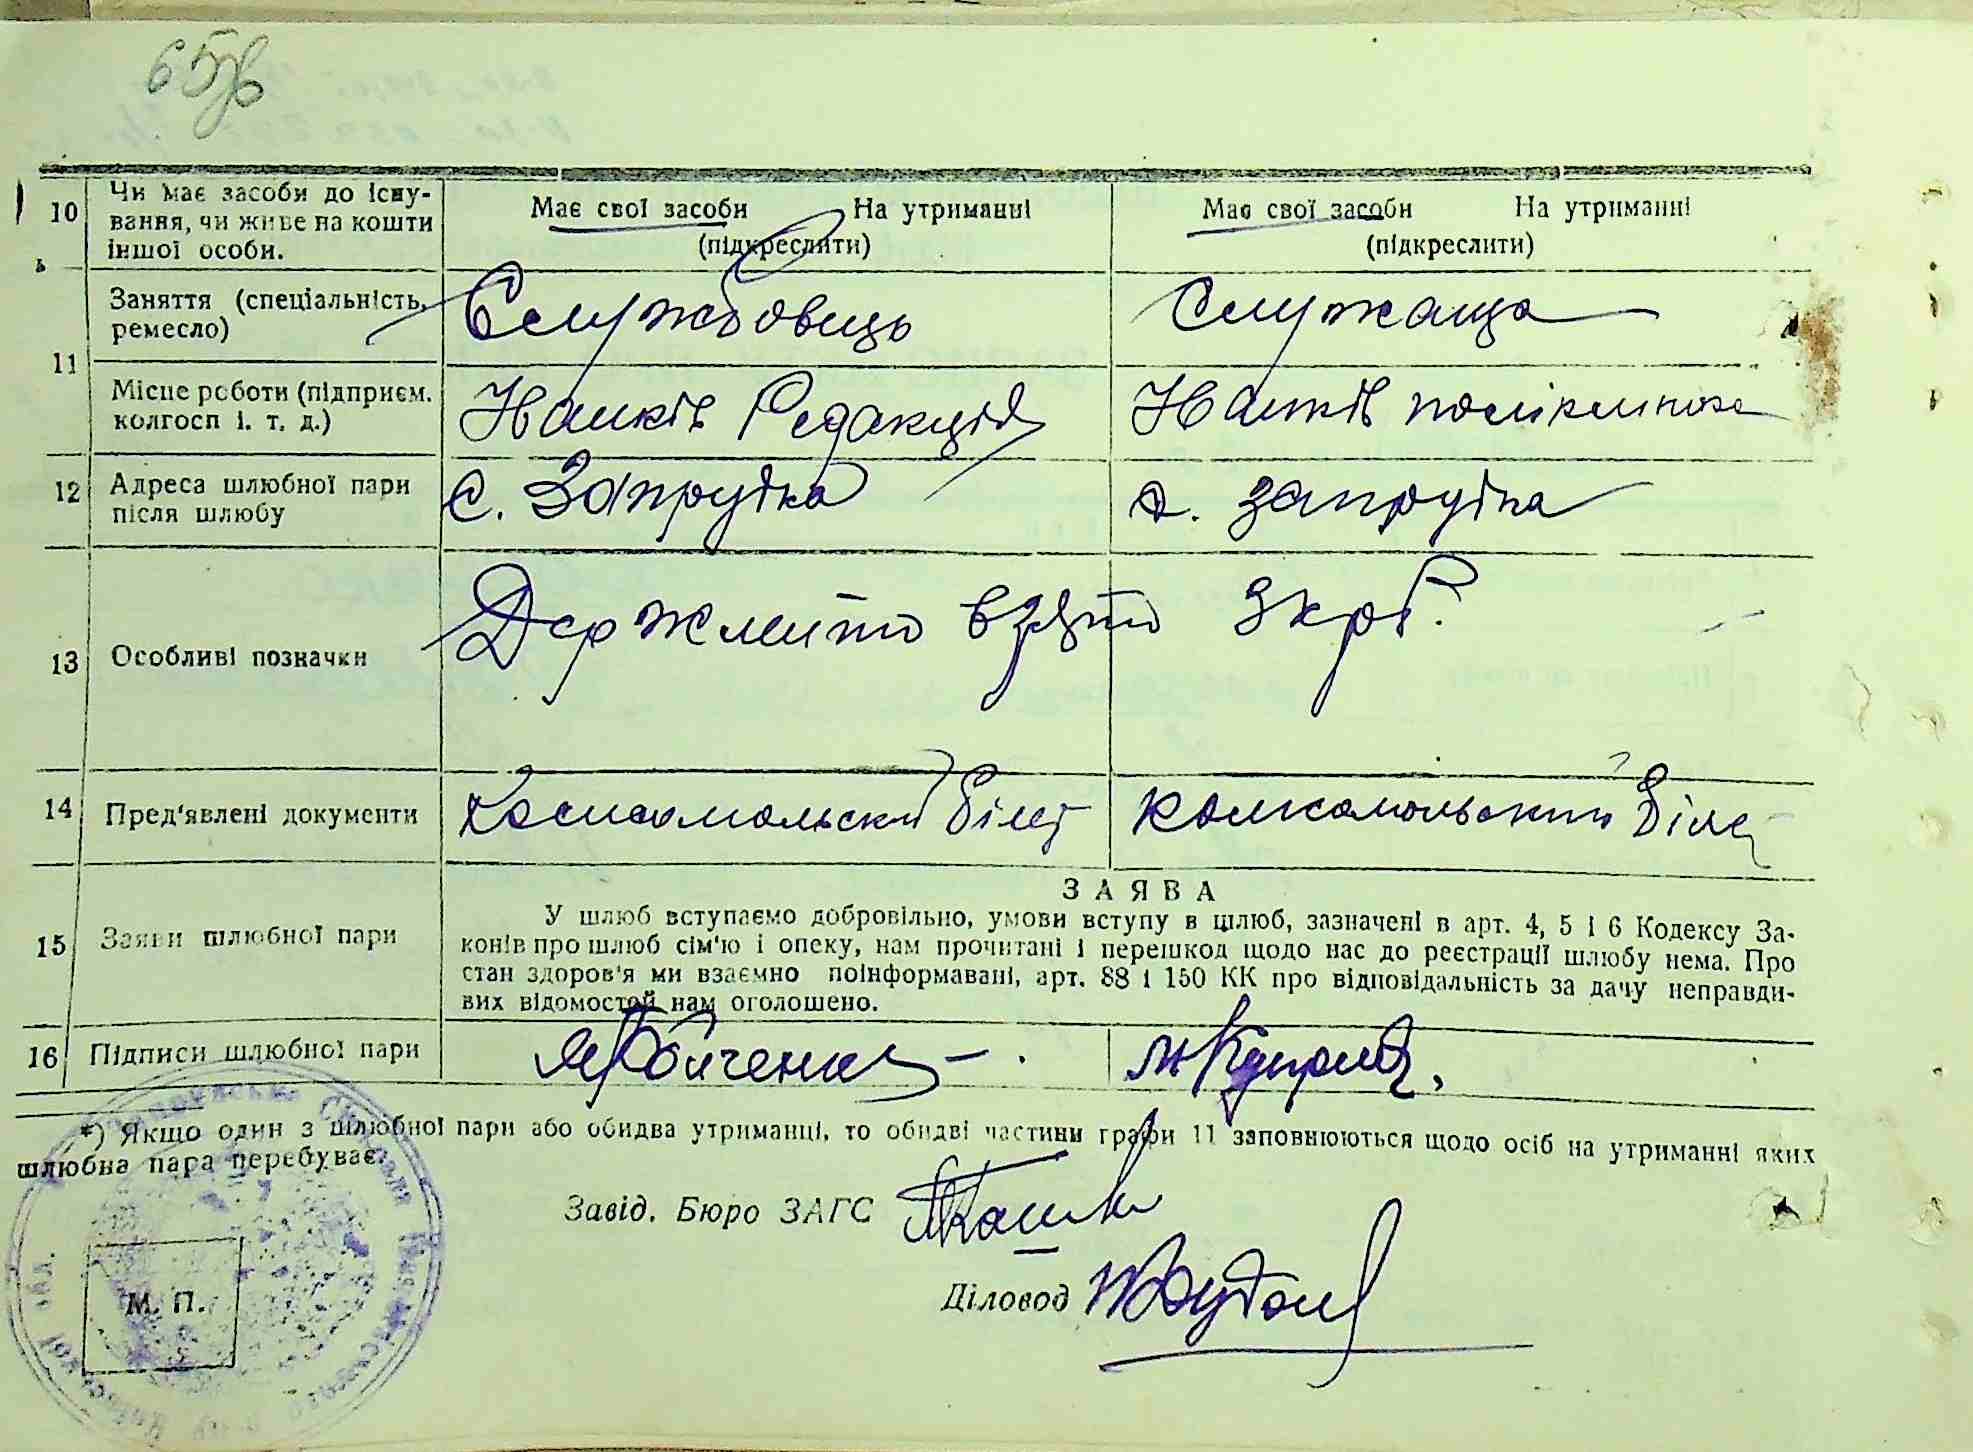 65зв
10 Чи має засоби до існу-
вання, чи живе на кошти
іншої особи.
Має свої засоби На утриманні
(підкреслити)
Має свої засоби На утриманні
(підкреслити)
11
Заняття (спеціальність,
ремесло)
Службовець
Служаща
Місце роботи (підприєм.
колгосп і. т. д.)
Редакція
поліклініка
12 Адреса шлюбної пари
після шлюбу
с. Запрудка
с. Запрудка
13 Особливі позначки
Держмито взято 3 крб.
14 Пред'явлені документи
Комсомольский білет
Комсомольский білет
15 Заяви шлюбної пари
ЗАЯВА
У шлюб вступаємо добровільно, умови вступу в шлюб, зазначені в арт. 4, 5 і 6 Кодексу За-
конів про шлюб сім'ю і опеку, нам прочитані і перешкод щодо нас до реєстрації шлюбу нема. Про
стан здоров'я ми взаємно поінформавані, арт. 88 і 150 КК про відповідальність за дачу неправди-
вих відомостей нам оголошено.
16 Підписи шлюбної пари
*) Якщо один з шлюбної пари або обидва утриманці, то обидві частини графи 11 заповнюються щодо осіб на утриманні яких
шлюбна пара перебуває.
Завід. Бюро ЗАГС
Діловод
М. П.